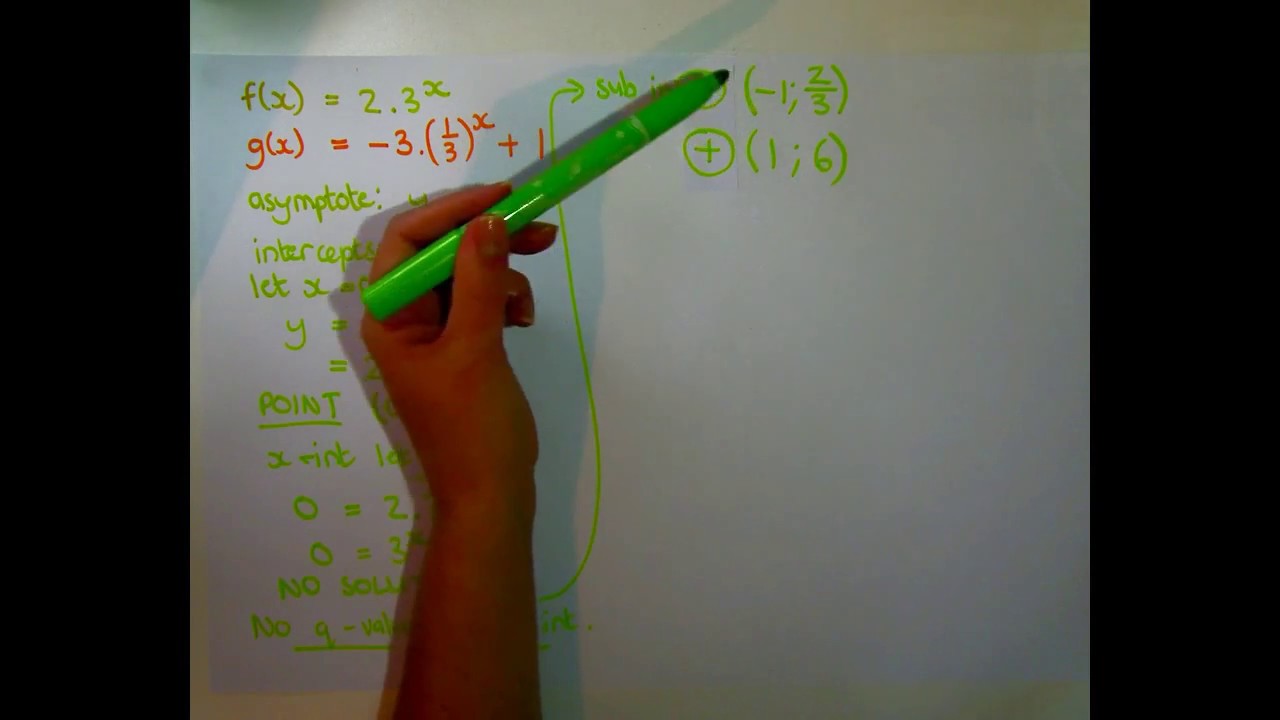 f(x) = 2.3^x
g(x) = -3.(1/3)^x + 1
asymptote: y
intercepts
let x =
y =
= 2
POINT (
x-int let
0 = 2.
0 = 3^x
NO
NO q - int.
→ sub
(-1; 2/3)
⊕ (1; 6)